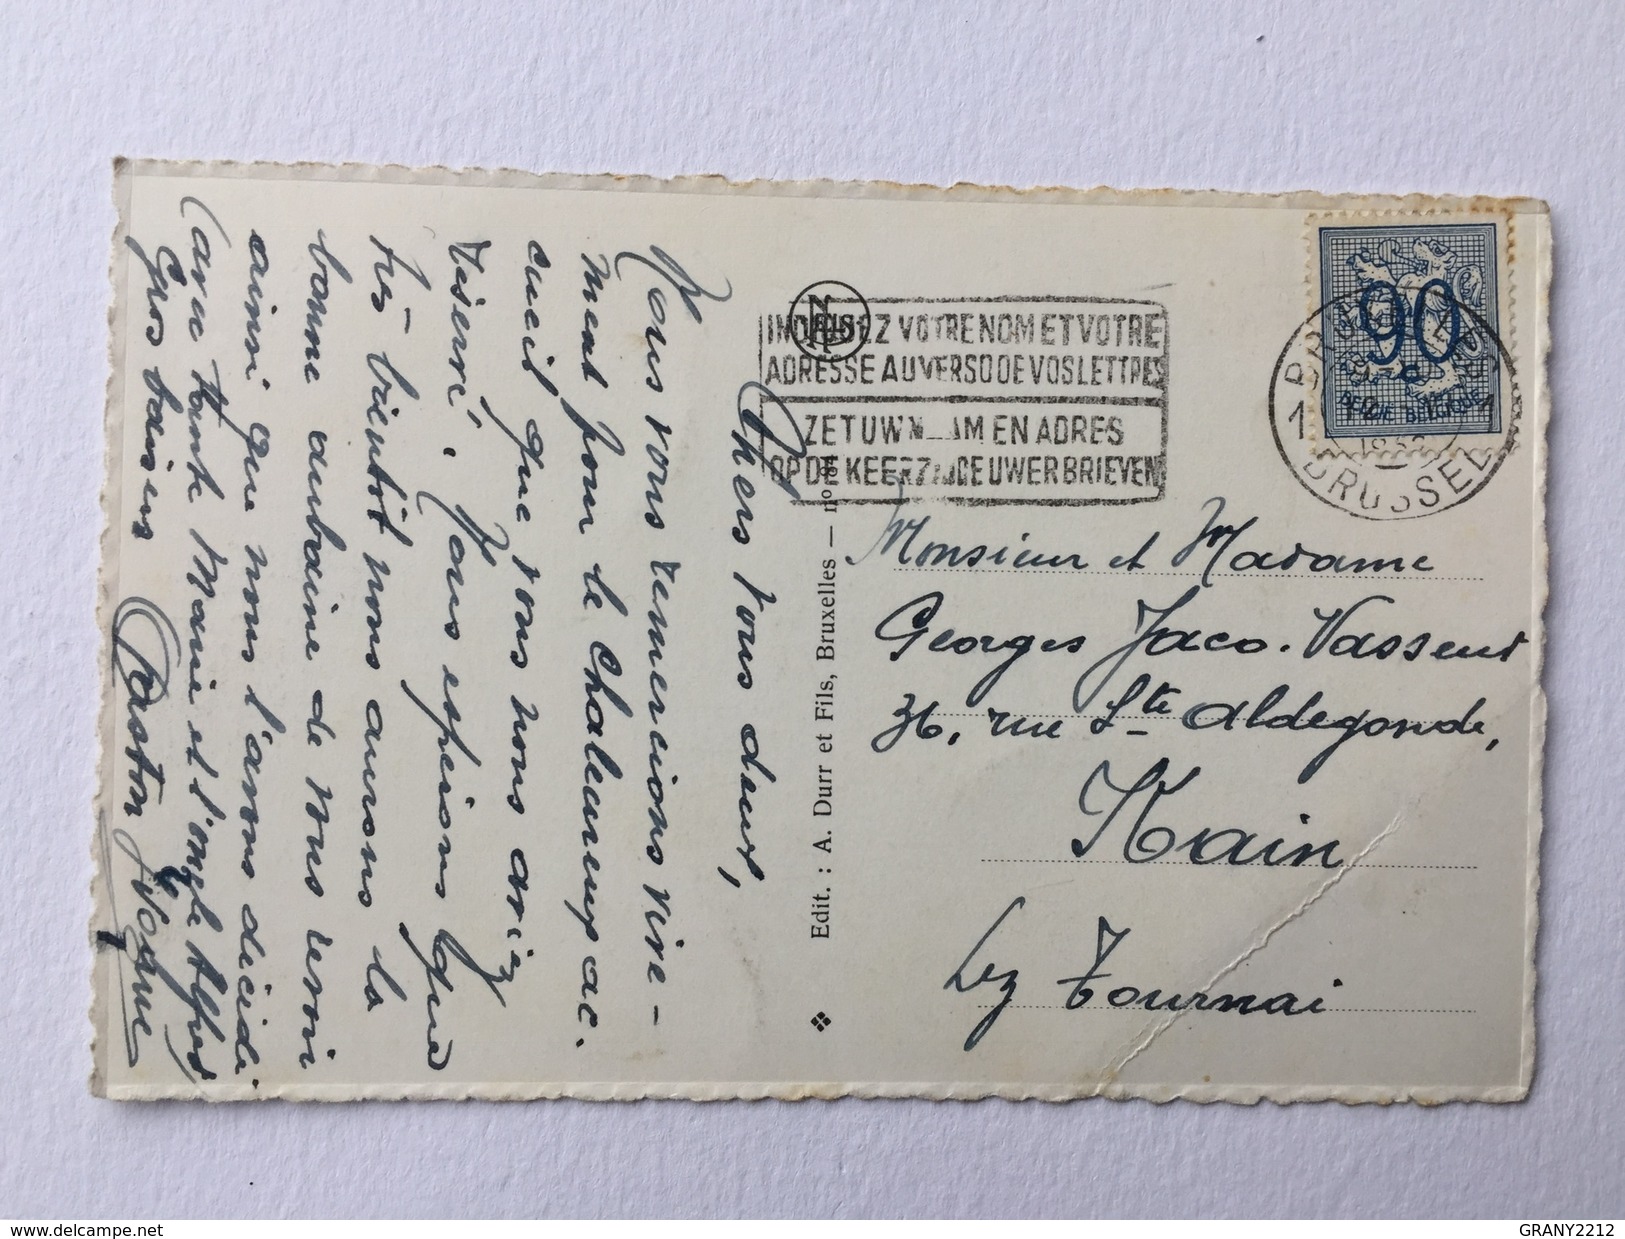 Chers Vous deux,
Nous vous remercions vive-
ment pour le Chaleureux ac-
cueil que vous nous aviez
réservé. Nous espérons que
très bientôt nous aurons la
bonne aubaine de vous revoir
ainsi que nous l'avons décidé
avec tante Marie et l'oncle Alfred
Gros baisers
Gaston
Edit. : A. Durr et Fils, Bruxelles — no 84
INDIQUEZ VOTRE NOM ET VOTRE
ADRESSE AU VERSO DE VOS LETTRES
ZET UW NAAM EN ADRES
OP DE KEERZIJDE UWER BRIEVEN
90
BELGIE BELGIQUE
BRUSSEL
Monsieur et Madame
Georges Jaco-Vasseur
36, rue Ste Aldegonde,
Kain
Lez Tournai
GRANY2212